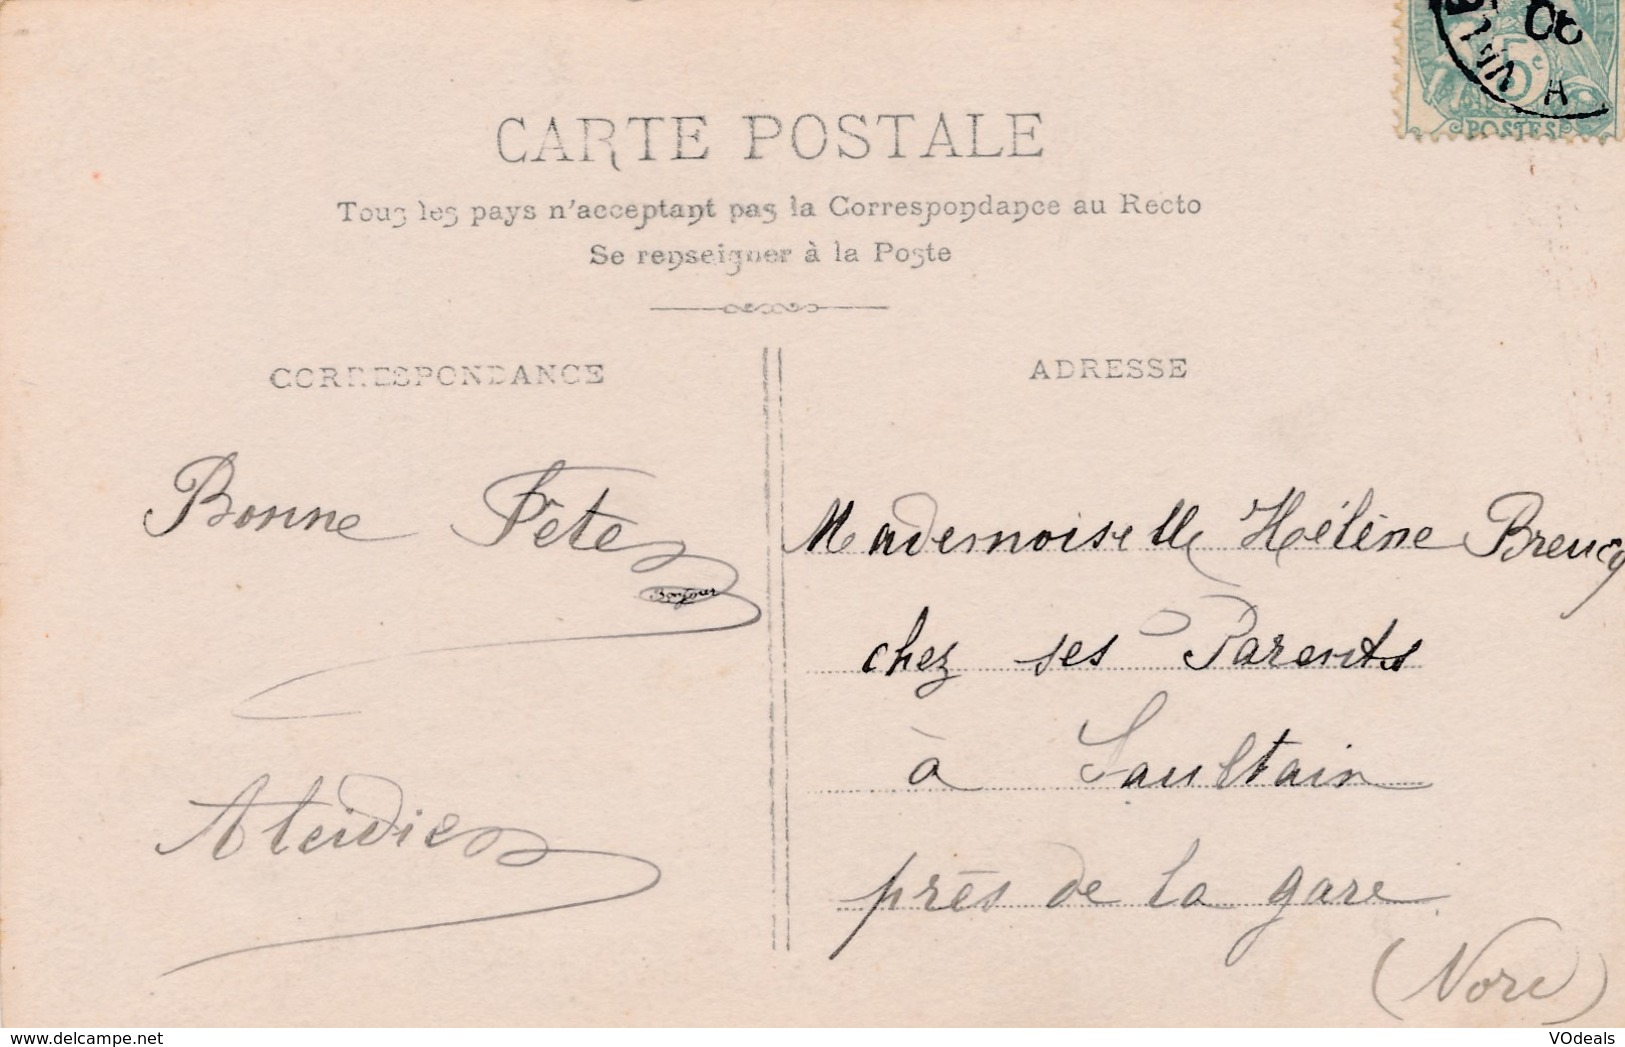 5c
POSTES
CARTE POSTALE
Tous les pays n'acceptant pas la Correspondance au Recto
Se renseigner à la Poste
CORRESPONDANCE
ADRESSE
Bonne Fête
Bonjour
Mademoiselle Hélène
chez ses Parents
à Saultain
près de la gare
(Nord)
VOdeals